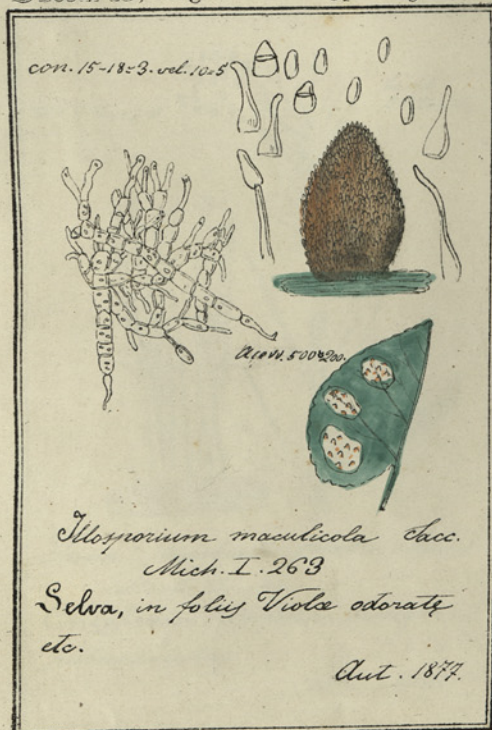 con. 15-18=3. vel. 10=5
Acerv. 500=200.
Illosporium maculicola Sacc.
Mich. I. 263
Selva, in foliis Violæ odoratę
etc.
Aut. 1877.